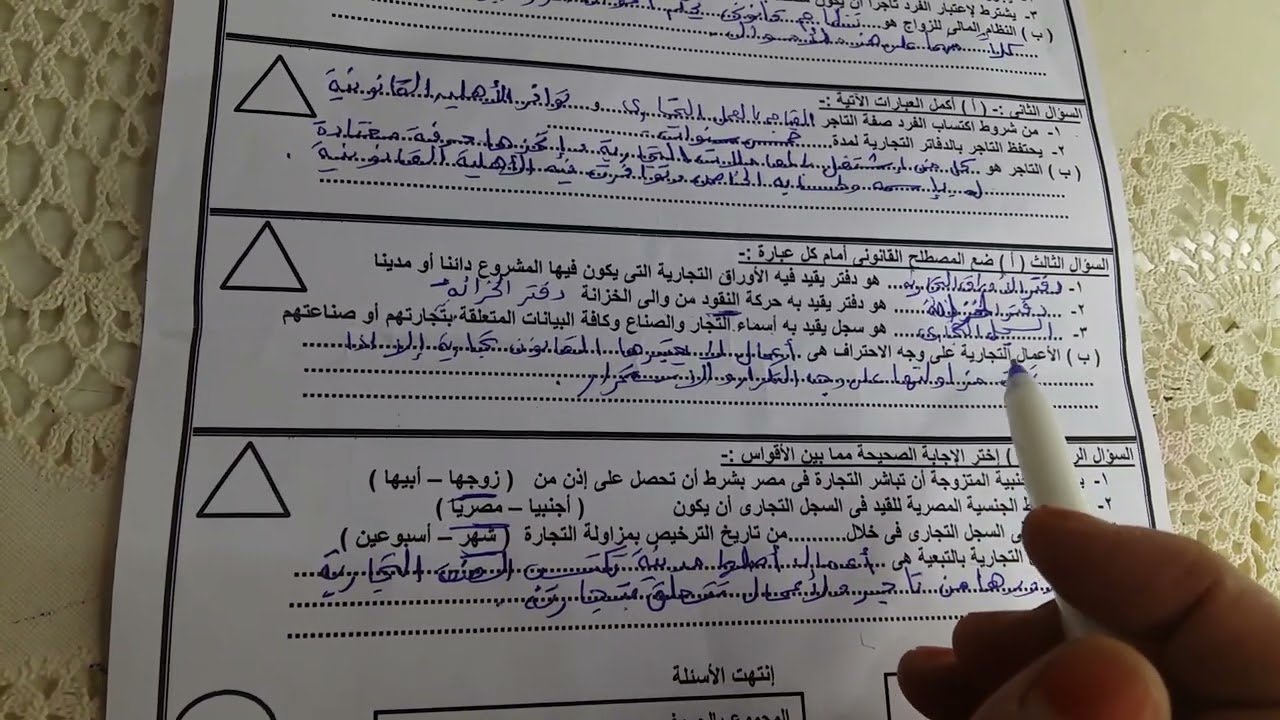 ٣- يشترط لإعتبار الفرد تاجراً أن يكون
( ب ) النظام المالى للزواج هو
السؤال الثانى :- ( أ ) أكمل العبارات الآتية :-
١- من شروط اكتساب الفرد صفة التاجر القيام بالعمل التجارى و توافر الأهلية القانونية
٢- يحتفظ التاجر بالدفاتر التجارية لمدة خمس سنوات
( ب ) التاجر هو كل من اشتغل بالمعاملات التجارية و اتخذها حرفة معتادة
له بإسمه وحسابه الخاص وتوافرت فيه الأهلية القانونية
السؤال الثالث ( أ ) ضع المصطلح القانونى أمام كل عبارة :-
١- دفتر الأوراق التجارية هو دفتر يقيد فيه الأوراق التجارية التى يكون فيها المشروع دائنا أو مدينا
٢- دفتر الخزانة هو دفتر يقيد به حركة النقود من والى الخزانة دفتر الخزانة
٣- السجل التجارى هو سجل يقيد به أسماء التجار والصناع وكافة البيانات المتعلقة بتجارتهم أو صناعتهم
( ب ) الأعمال التجارية على وجه الاحتراف هى أعمال لا يعتبرها القانون تجارية إلا إذا
مزاولتها على وجه التكرار والاستمرار
السؤال ) اختر الإجابة الصحيحة مما بين الأقواس :-
١- المتزوجة أن تباشر التجارة فى مصر بشرط أن تحصل على إذن من ( زوجها – أبيها )
٢- الجنسية المصرية للقيد فى السجل التجارى أن يكون ( أجنبيا – مصريا )
السجل التجارى فى خلال..........من تاريخ الترخيص بمزاولة التجارة ( شهر – أسبوعين )
التجارية بالتبعية هى أعمال أصلها مدنية تكتسب الصفة التجارية
من تاجر ولأعمال متعلقة بتجارته
إنتهت الأسئلة